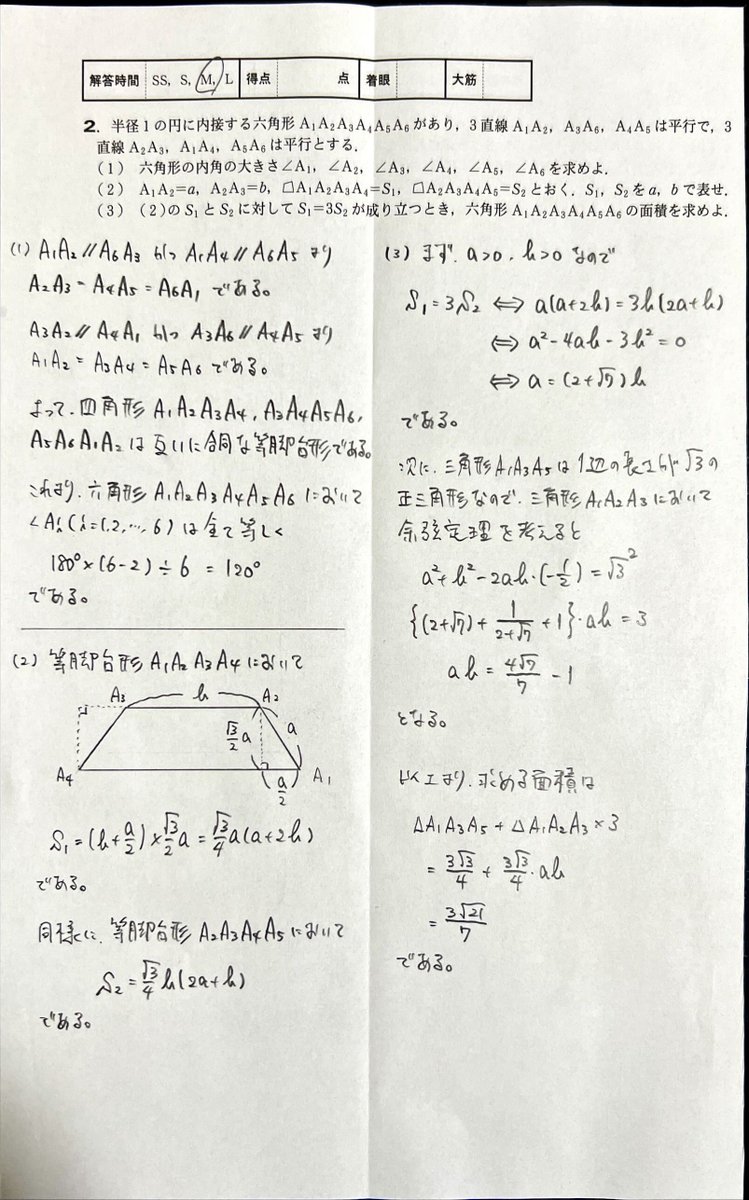 解答時間 SS, S, M, L 得点 点 着眼 大筋
2. 半径1の円に内接する六角形A₁A₂A₃A₄A₅A₆があり，3直線A₁A₂，A₃A₆，A₄A₅は平行で，3
直線A₂A₃，A₁A₄，A₅A₆は平行とする．
(1) 六角形の内角の大きさ∠A₁，∠A₂，∠A₃，∠A₄，∠A₅，∠A₆を求めよ．
(2) A₁A₂=a，A₂A₃=b，□A₁A₂A₃A₄=S₁，□A₂A₃A₄A₅=S₂とおく．S₁，S₂をa，bで表せ．
(3) (2)のS₁とS₂に対してS₁=3S₂が成り立つとき，六角形A₁A₂A₃A₄A₅A₆の面積を求めよ．
(1) A₁A₂ // A₆A₃ かつ A₁A₄ // A₆A₅ より
A₂A₃ = A₄A₅ = A₆A₁ である。
A₃A₂ // A₄A₁ かつ A₃A₆ // A₄A₅ より
A₁A₂ = A₃A₄ = A₅A₆ である。
よって、四角形 A₁A₂A₃A₄, A₃A₄A₅A₆,
A₅A₆A₁A₂ は互いに合同な等脚台形である。
これより、六角形 A₁A₂A₃A₄A₅A₆ において
∠Ai (i=1,2,…,6) は全て等しく
180°×(6-2)÷6 = 120°
である。
(2) 等脚台形 A₁A₂A₃A₄ において
A₃ b A₂
√3/2 a a
A₄ a/2 A₁
S₁ = (b+a/2)×√3/2 a = √3/4 a(a+2b)
である。
同様に、等脚台形 A₂A₃A₄A₅ において
S₂ = √3/4 b(2a+b)
である。
(3) まず、a>0, b>0 なので
S₁=3S₂ ⇔ a(a+2b)=3b(2a+b)
⇔ a²-4ab-3b²=0
⇔ a=(2+√7)b
である。
次に、三角形A₁A₃A₅は1辺の長さが√3の
正三角形なので、三角形A₁A₂A₃において
余弦定理を考えると
a²+b²-2ab·(-1/2)=√3²
{(2+√7)+1/(2+√7)+1}·ab=3
ab=4√7/7-1
となる。
以上より、求める面積は
△A₁A₃A₅+△A₁A₂A₃×3
=3√3/4+3√3/4·ab
=3√21/7
である。